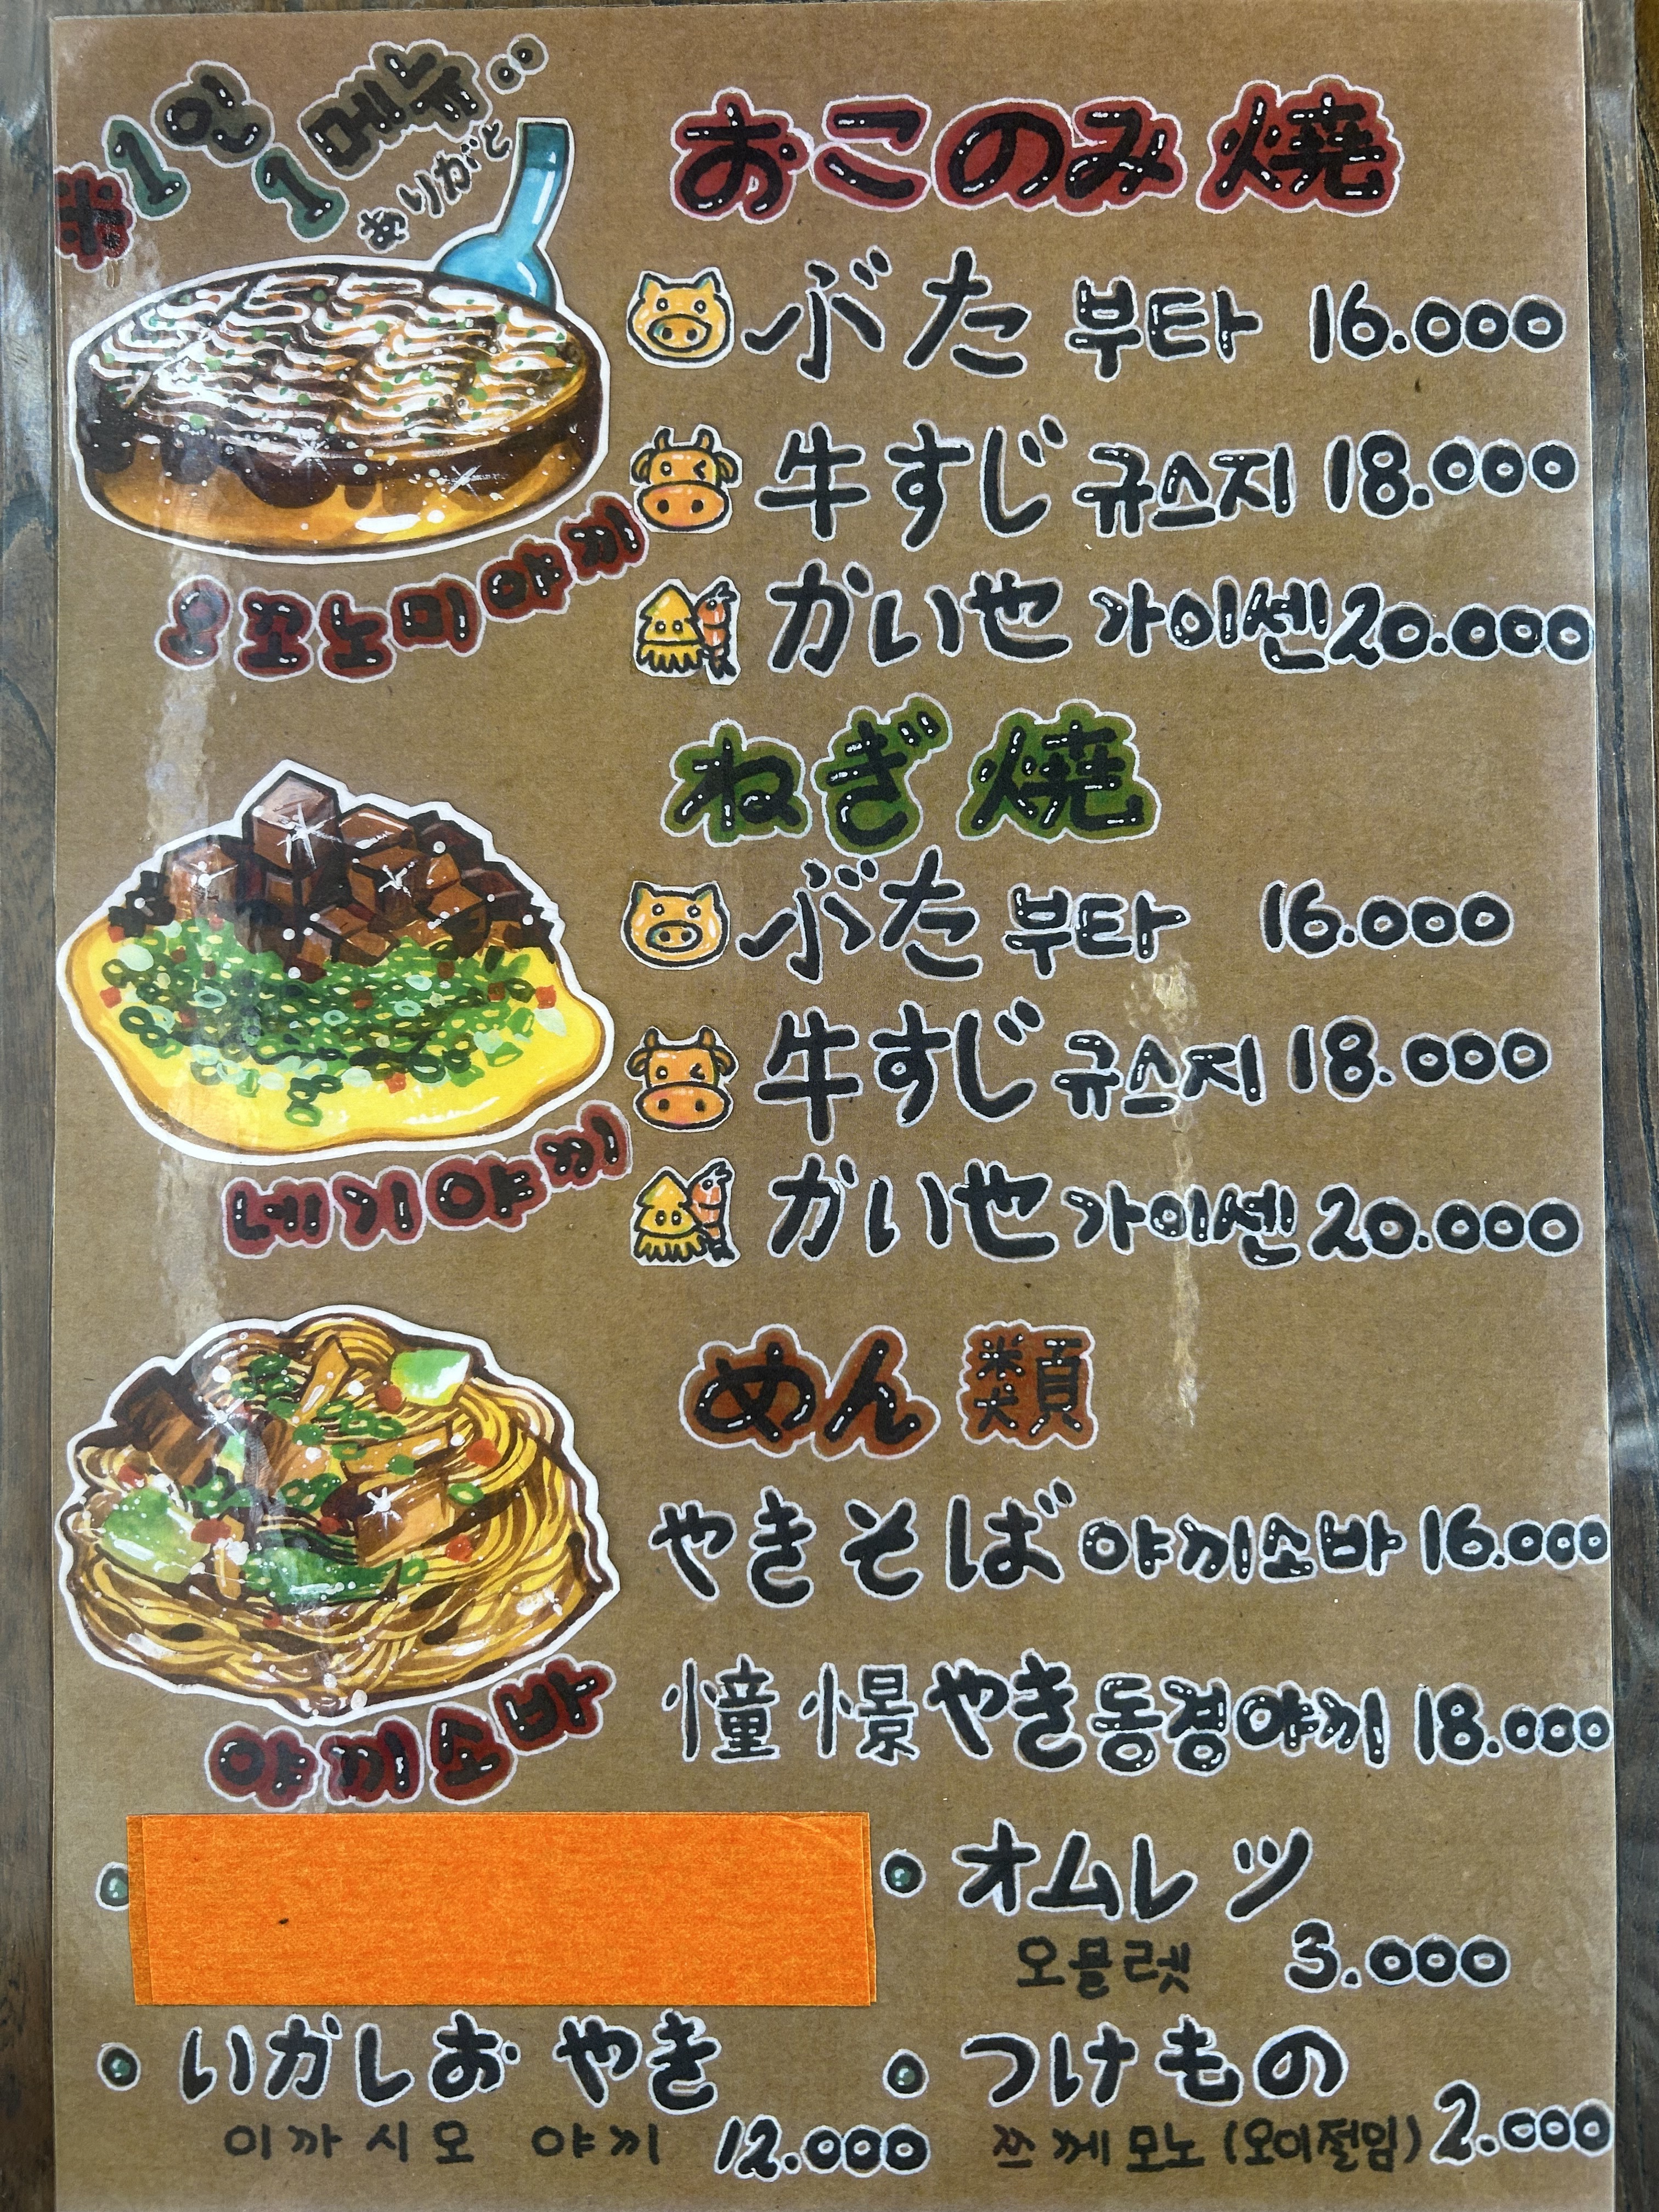 ※1인 1메뉴..
ありがと
おこのみ焼
ぶた 부타 16.000
牛すじ 규스지 18.000
かいせ 가이센 20.000
오꼬노미야끼
ねぎ焼
ぶた 부타 16.000
牛すじ 규스지 18.000
かいせ 가이센 20.000
네기야끼
めん類
やきそば 야끼소바 16.000
憧憬やき 동경야끼 18.000
야끼소바
オムレツ
오믈렛 3.000
いかしおやき
이까시오 야끼 12.000
つけもの
쯔께모노 (오이절임) 2.000